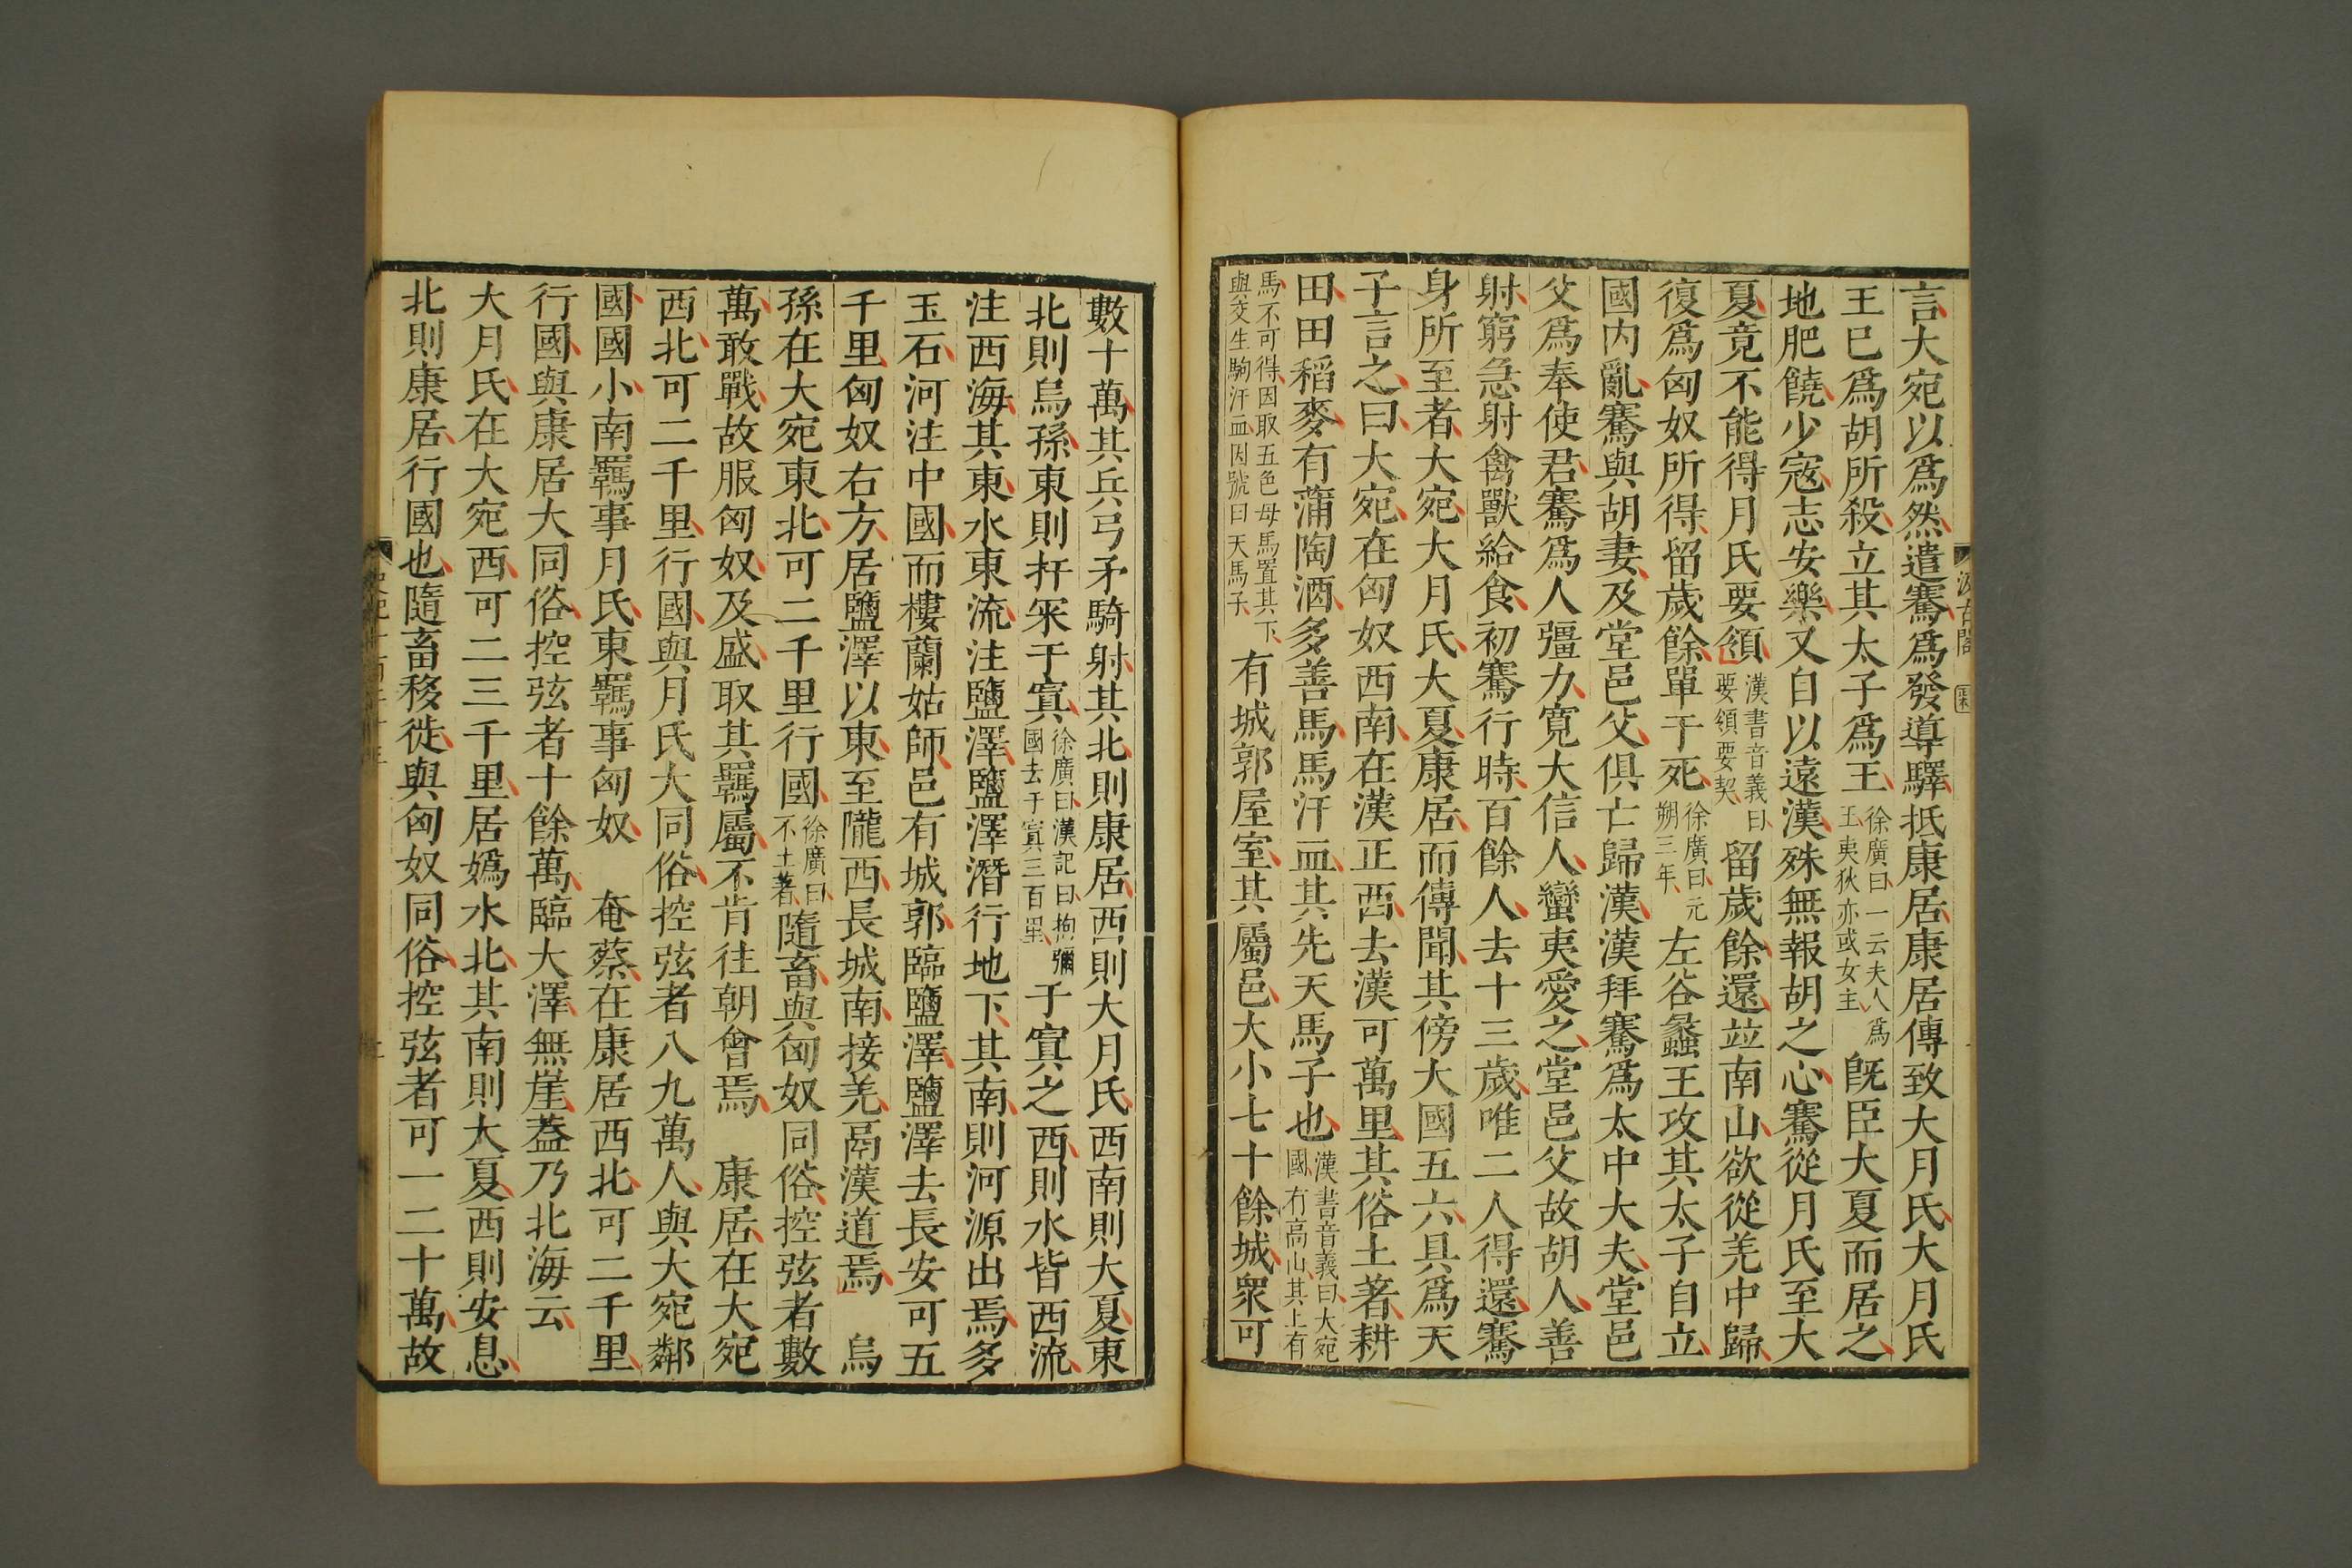 言大宛以爲然遣騫爲發導驛抵康居康居傳致大月氏大月氏
王已爲胡所殺立其太子爲王徐廣曰一云夫人爲王夷狄亦或女主既臣大夏而居之
地肥饒少寇志安樂又自以遠漢殊無報胡之心騫從月氏至大
夏竟不能得月氏要領漢書音義曰要領要契留歲餘還竝南山欲從羌中歸
復爲匈奴所得留歲餘單于死徐廣曰元朔三年左谷蠡王攻其太子自立
國内亂騫與胡妻及堂邑父俱亡歸漢漢拜騫爲太中大夫堂邑
父爲奉使君騫爲人彊力寬大信人蠻夷愛之堂邑父故胡人善
射窮急射禽獸給食初騫行時百餘人去十三歲唯二人得還騫
身所至者大宛大月氏大夏康居而傳聞其傍大國五六具爲天
子言之曰大宛在匈奴西南在漢正西去漢可萬里其俗土著耕
田田稻麥有蒲陶酒多善馬馬汗血其先天馬子也漢書音義曰大宛國有高山其上有
馬不可得因取五色母馬置其下與交生駒汗血因號曰天馬子有城郭屋室其屬邑大小七十餘城衆可
汲古閣
數十萬其兵弓矛騎射其北則康居西則大月氏西南則大夏東
北則烏孫東則扜罙于窴徐廣曰漢記曰拘彌國去于窴三百里于窴之西則水皆西流
注西海其東水東流注鹽澤鹽澤潛行地下其南則河源出焉多
玉石河注中國而樓蘭姑師邑有城郭臨鹽澤鹽澤去長安可五
千里匈奴右方居鹽澤以東至隴西長城南接羌鬲漢道焉　烏
孫在大宛東北可二千里行國徐廣曰不土著隨畜與匈奴同俗控弦者數
萬敢戰故服匈奴及盛取其羈屬不肯往朝會焉　康居在大宛
西北可二千里行國與月氏大同俗控弦者八九萬人與大宛鄰
國國小南羈事月氏東羈事匈奴　奄蔡在康居西北可二千里
行國與康居大同俗控弦者十餘萬臨大澤無崖蓋乃北海云
大月氏在大宛西可二三千里居嬀水北其南則大夏西則安息
北則康居行國也隨畜移徙與匈奴同俗控弦者可一二十萬故